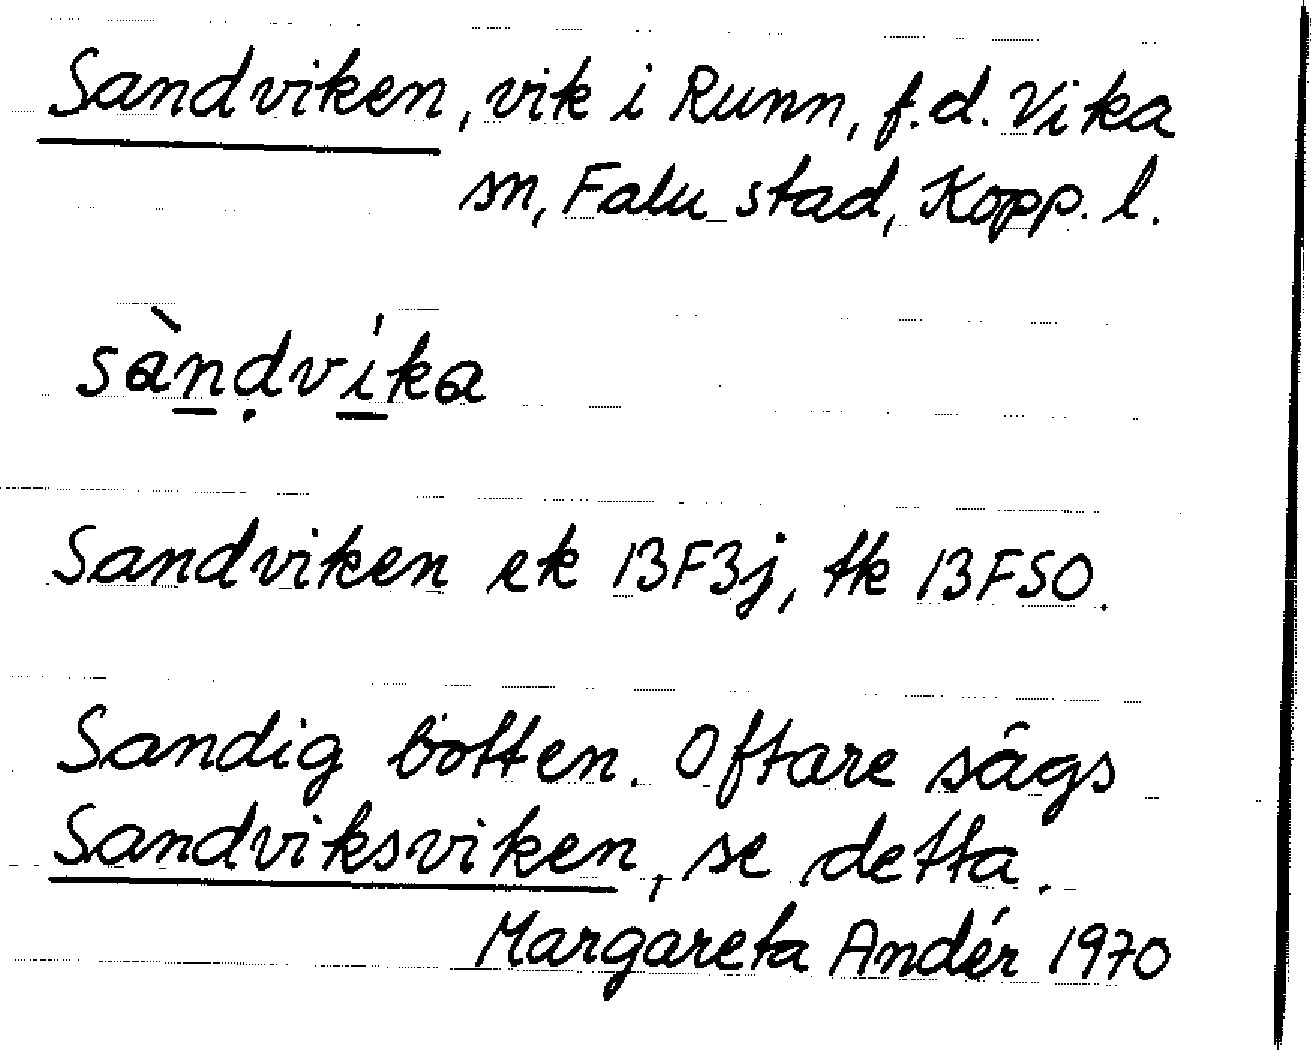 Sandviken, vik i Runn, f.d. Vika
sn, Falu stad, Kopp. l.
sàn̲ḍví̲ka
Sandviken ek 13F3j, tk 13FSO.
Sandig botten. Oftare sägs
Sandviksviken, se detta.
Margareta Andér 1970